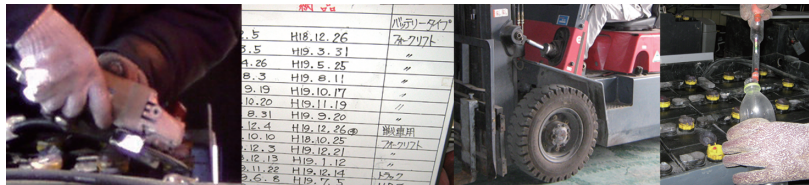 バッテリータイプ
.5 H18.12.26 フォークリフト
3.5 H19.3.31 〃
4.26 H19.5.25 〃
8.3 H19.8.11 〃
9.19 H19.10.17 〃
10.20 H19.11.19 〃
8.31 H19.9.20 〃
12.4 H19.12.26
10.10 H18.10.25 フォークリフト
12.3 H19.12.21 〃
12.13 H19.1.12 〃
11.22 H19.12.14 トラック
6.8 H19.7.5